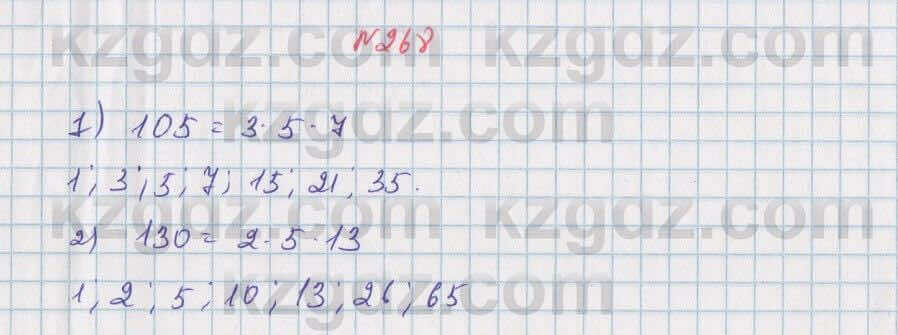 №268
1) 105 = 3·5·7
1; 3; 5; 7; 15; 21; 35.
2) 130 = 2·5·13
1; 2; 5; 10; 13; 26; 65
kzgdz.com kzgdz.com
kzgdz.com
kzgdz.com kzgdz.com
kzgdz.com